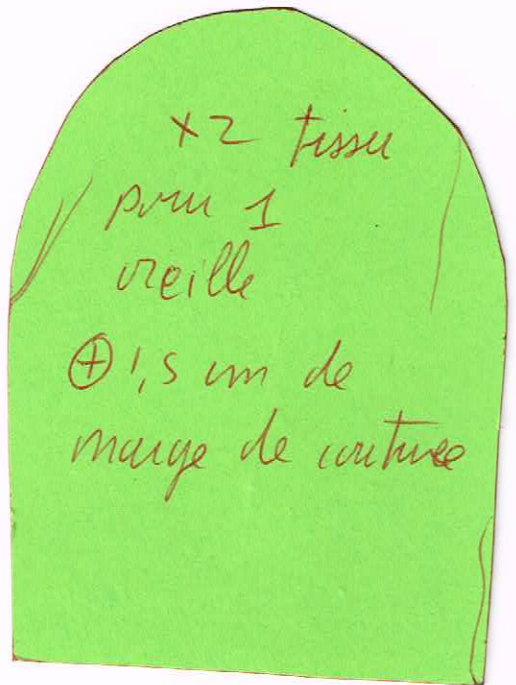 x2 tissu
pour 1
oreille
⊕ 1,5 cm de
marge de couture